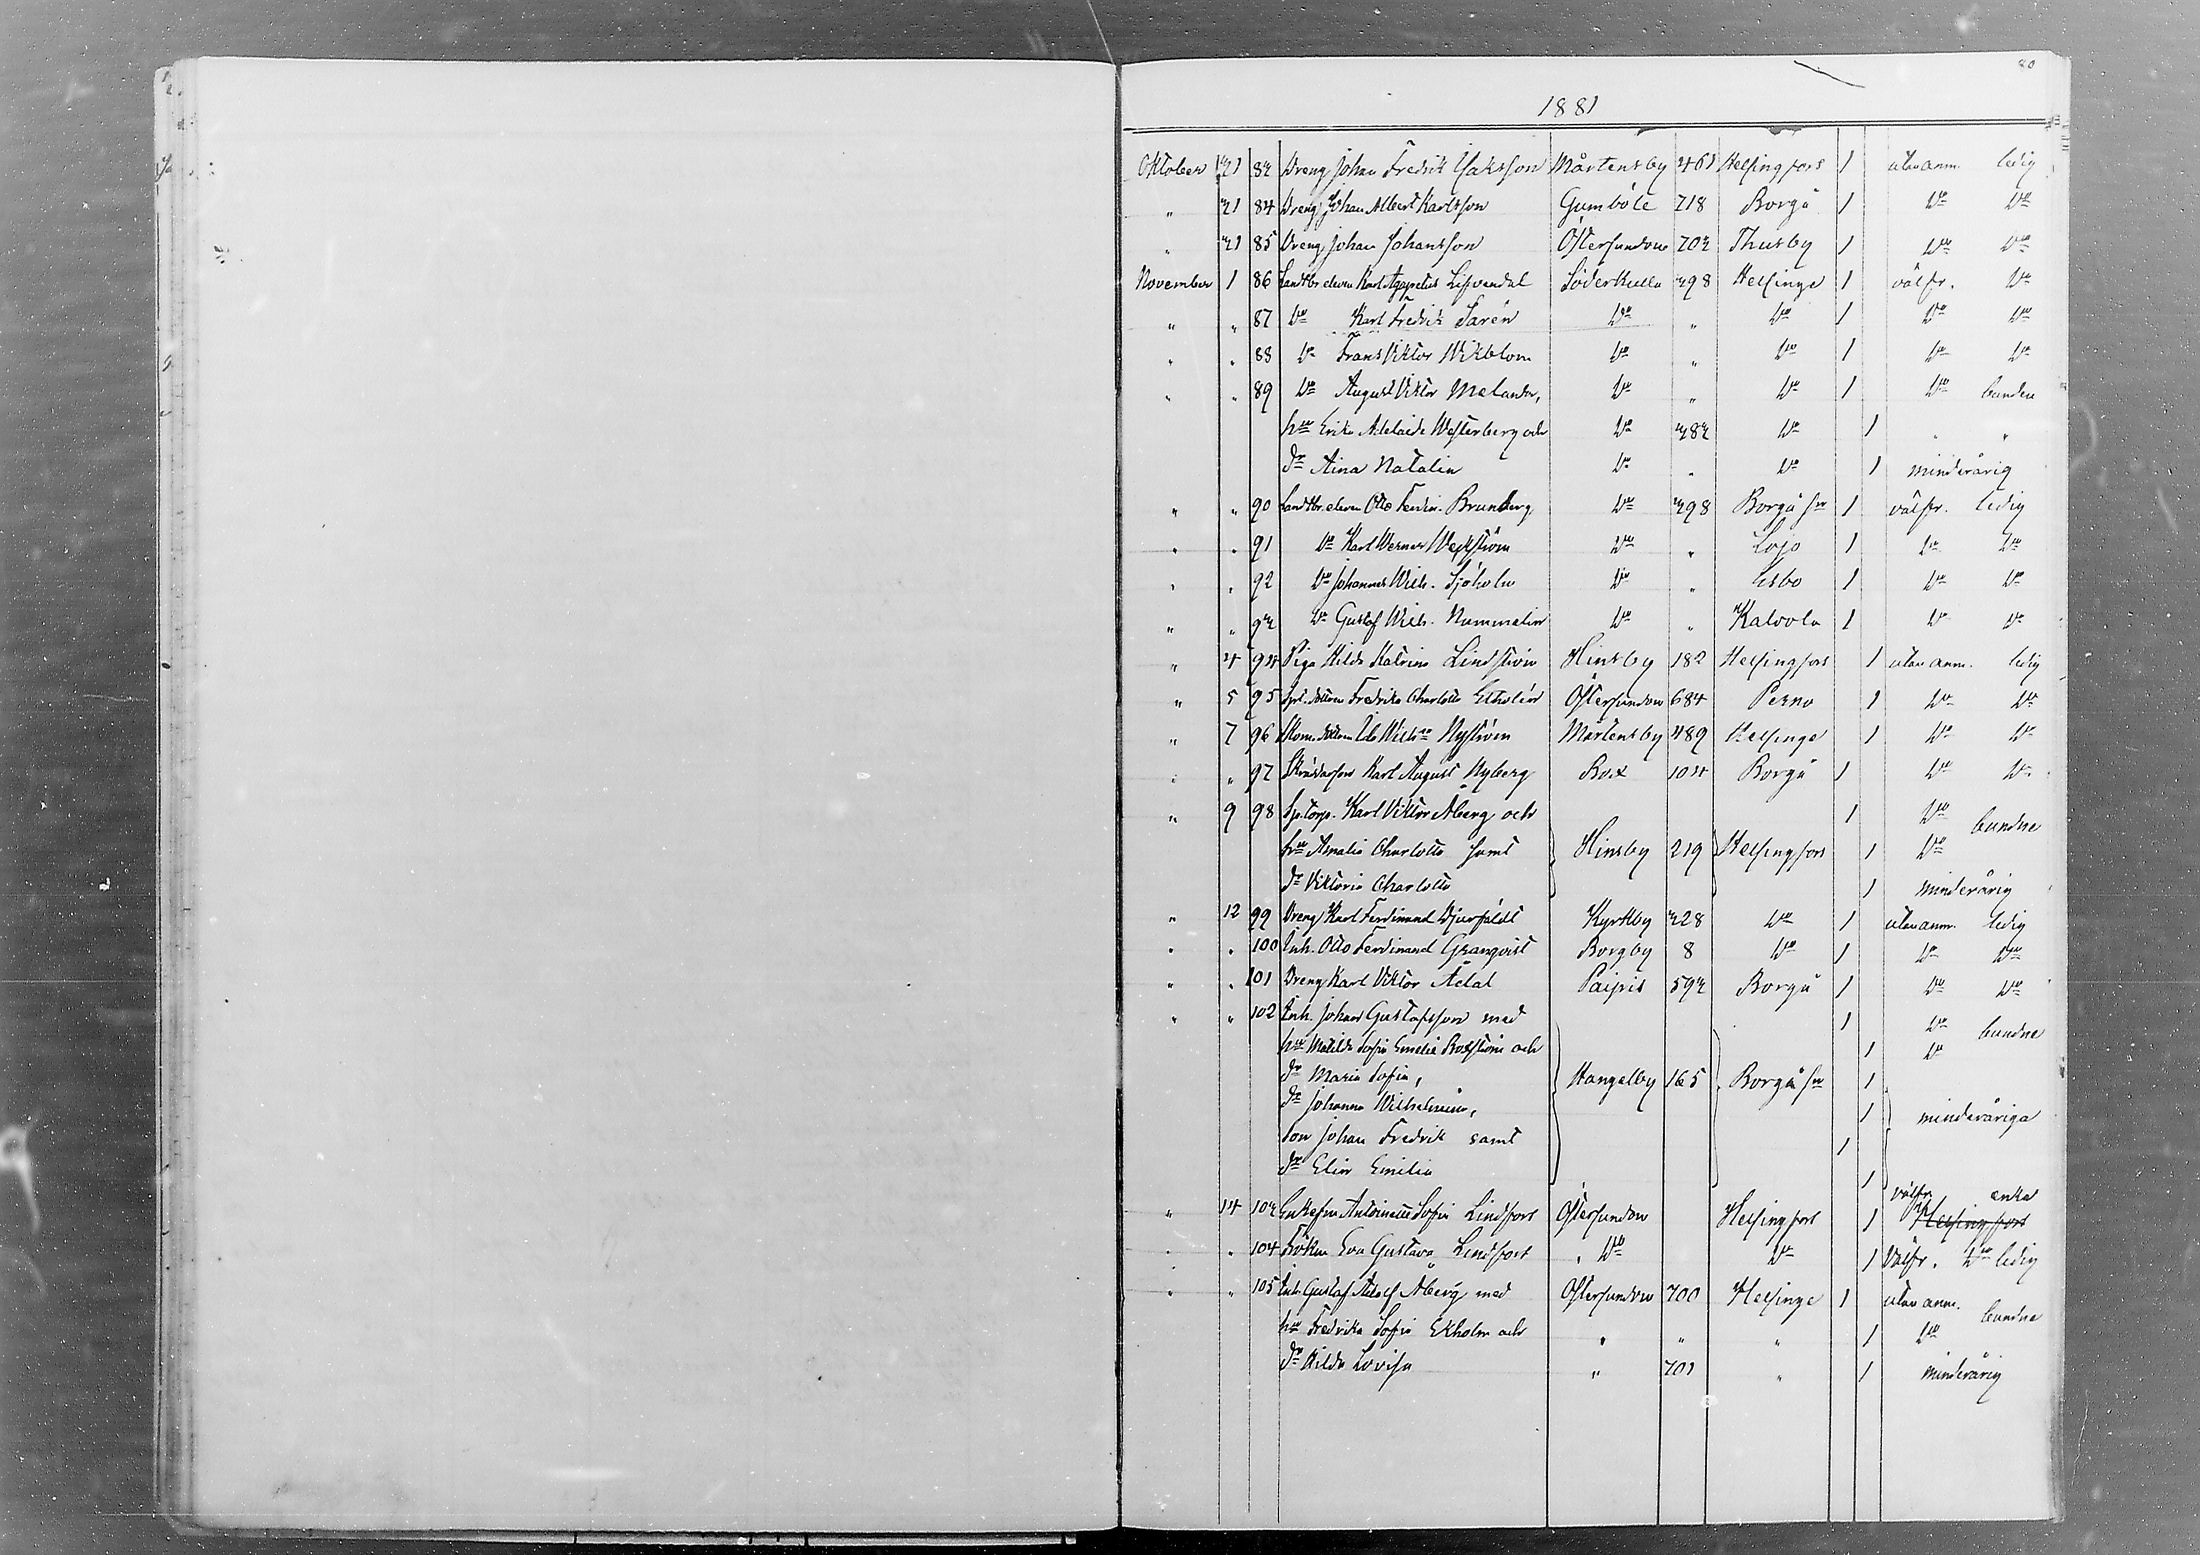 80
1881
Oktober 31 83 Dreng Johan Fredrik Isaksson Mårtensby 461 Helsingfors 1 utan anm. ledig
" 31 84 Dreng Johan Albert Karlsson Gumböle 718 Borgå 1 Do Do
" 31 85 Dreng Johan Johansson Östersundom 703 Thusby 1 Do Do
November 1 86 Landtbr. eleven Karl Agapetus Lifvendal Söderkulla 398 Helsinge 1 välfr. Do
" " 87 Do Karl Fredrik Sarén Do " Do 1 Do Do
" " 88 Do Frans Viktor Wikblom Do " Do 1 Do Do
" " 89 Do August Viktor Melander, Do " Do 1 Do bunden
hu Erika Adelaide Westerberg och Do 383 Do 1 " "
dr Aina Natalia Do " Do 1 minderårig
" " 90 Landtbr. eleven Otto Ferdin. Brunberg Do 398 Borgå sn 1 välfr. ledig
" " 91 Do Karl Werner Weckström Do " Lojo 1 Do Do
" " 92 Do Johannes Wilh. Sjöholm Do " Esbo 1 Do Do
" " 93 Do Gustaf Wilh. Nummelin Do " Kalvola 1 Do Do
" 4 94 Piga Hilda Katrina Lindström Hinsby 182 Helsingfors 1 utan anm. ledig
" 5 95 Fredrika Charlotta Etholén Östersundom 684 Perno 1 Do Do
" 7 96 Ida Wilhna Nyström Mårtensby 489 Helsinge 1 Do Do
" " 97 Skräddarson Karl August Nyberg Box 104 Borgå 1 Do Do
" 9 98 Sp. torp. Karl Viktor Åberg och 1 Do bundne
hu Amalia Charlotta samt Hinsby 219 Helsingfors 1 Do
dr Viktoria Charlotta 1 minderårig
" 12 99 Dreng Karl Ferdinand Djurfeldt Kyrkby 328 Do 1 utan anm. ledig
" " 100 Inh. Otto Ferdinand Granqvist Borgby 8 Do 1 Do Do
" " 101 Dreng Karl Viktor Adal Paipis 593 Borgå 1 Do Do
" " 102 Inh. Johan Gustafsson med 1 Do bundne
hu Matilda Sofia Emelia Boxström och 1 Do
dr Maria Sofia, Hangelby 165 Borgå sn 1
dr Johanna Wilhelmina, 1 minderåriga
son Johan Fredrik samt 1
dr Elin Emilia 1
välfr. enka
" 14 103 Enkefru Antoinette Sofia Lindfors Östersundom Helsingfors 1 Helsingfors
" " 104 Fröken Eva Gustava Lindfors Do Do 1 Välfr. Do ledig
" " 105 Inh. Gustaf Adolf Åberg med Östersundom 700 Helsinge 1 utan anm. bundne
hu Fredrika Sofia Ekholm och " " " 1 Do
dr Hilda Lovisa " 701 " 1 minderårig